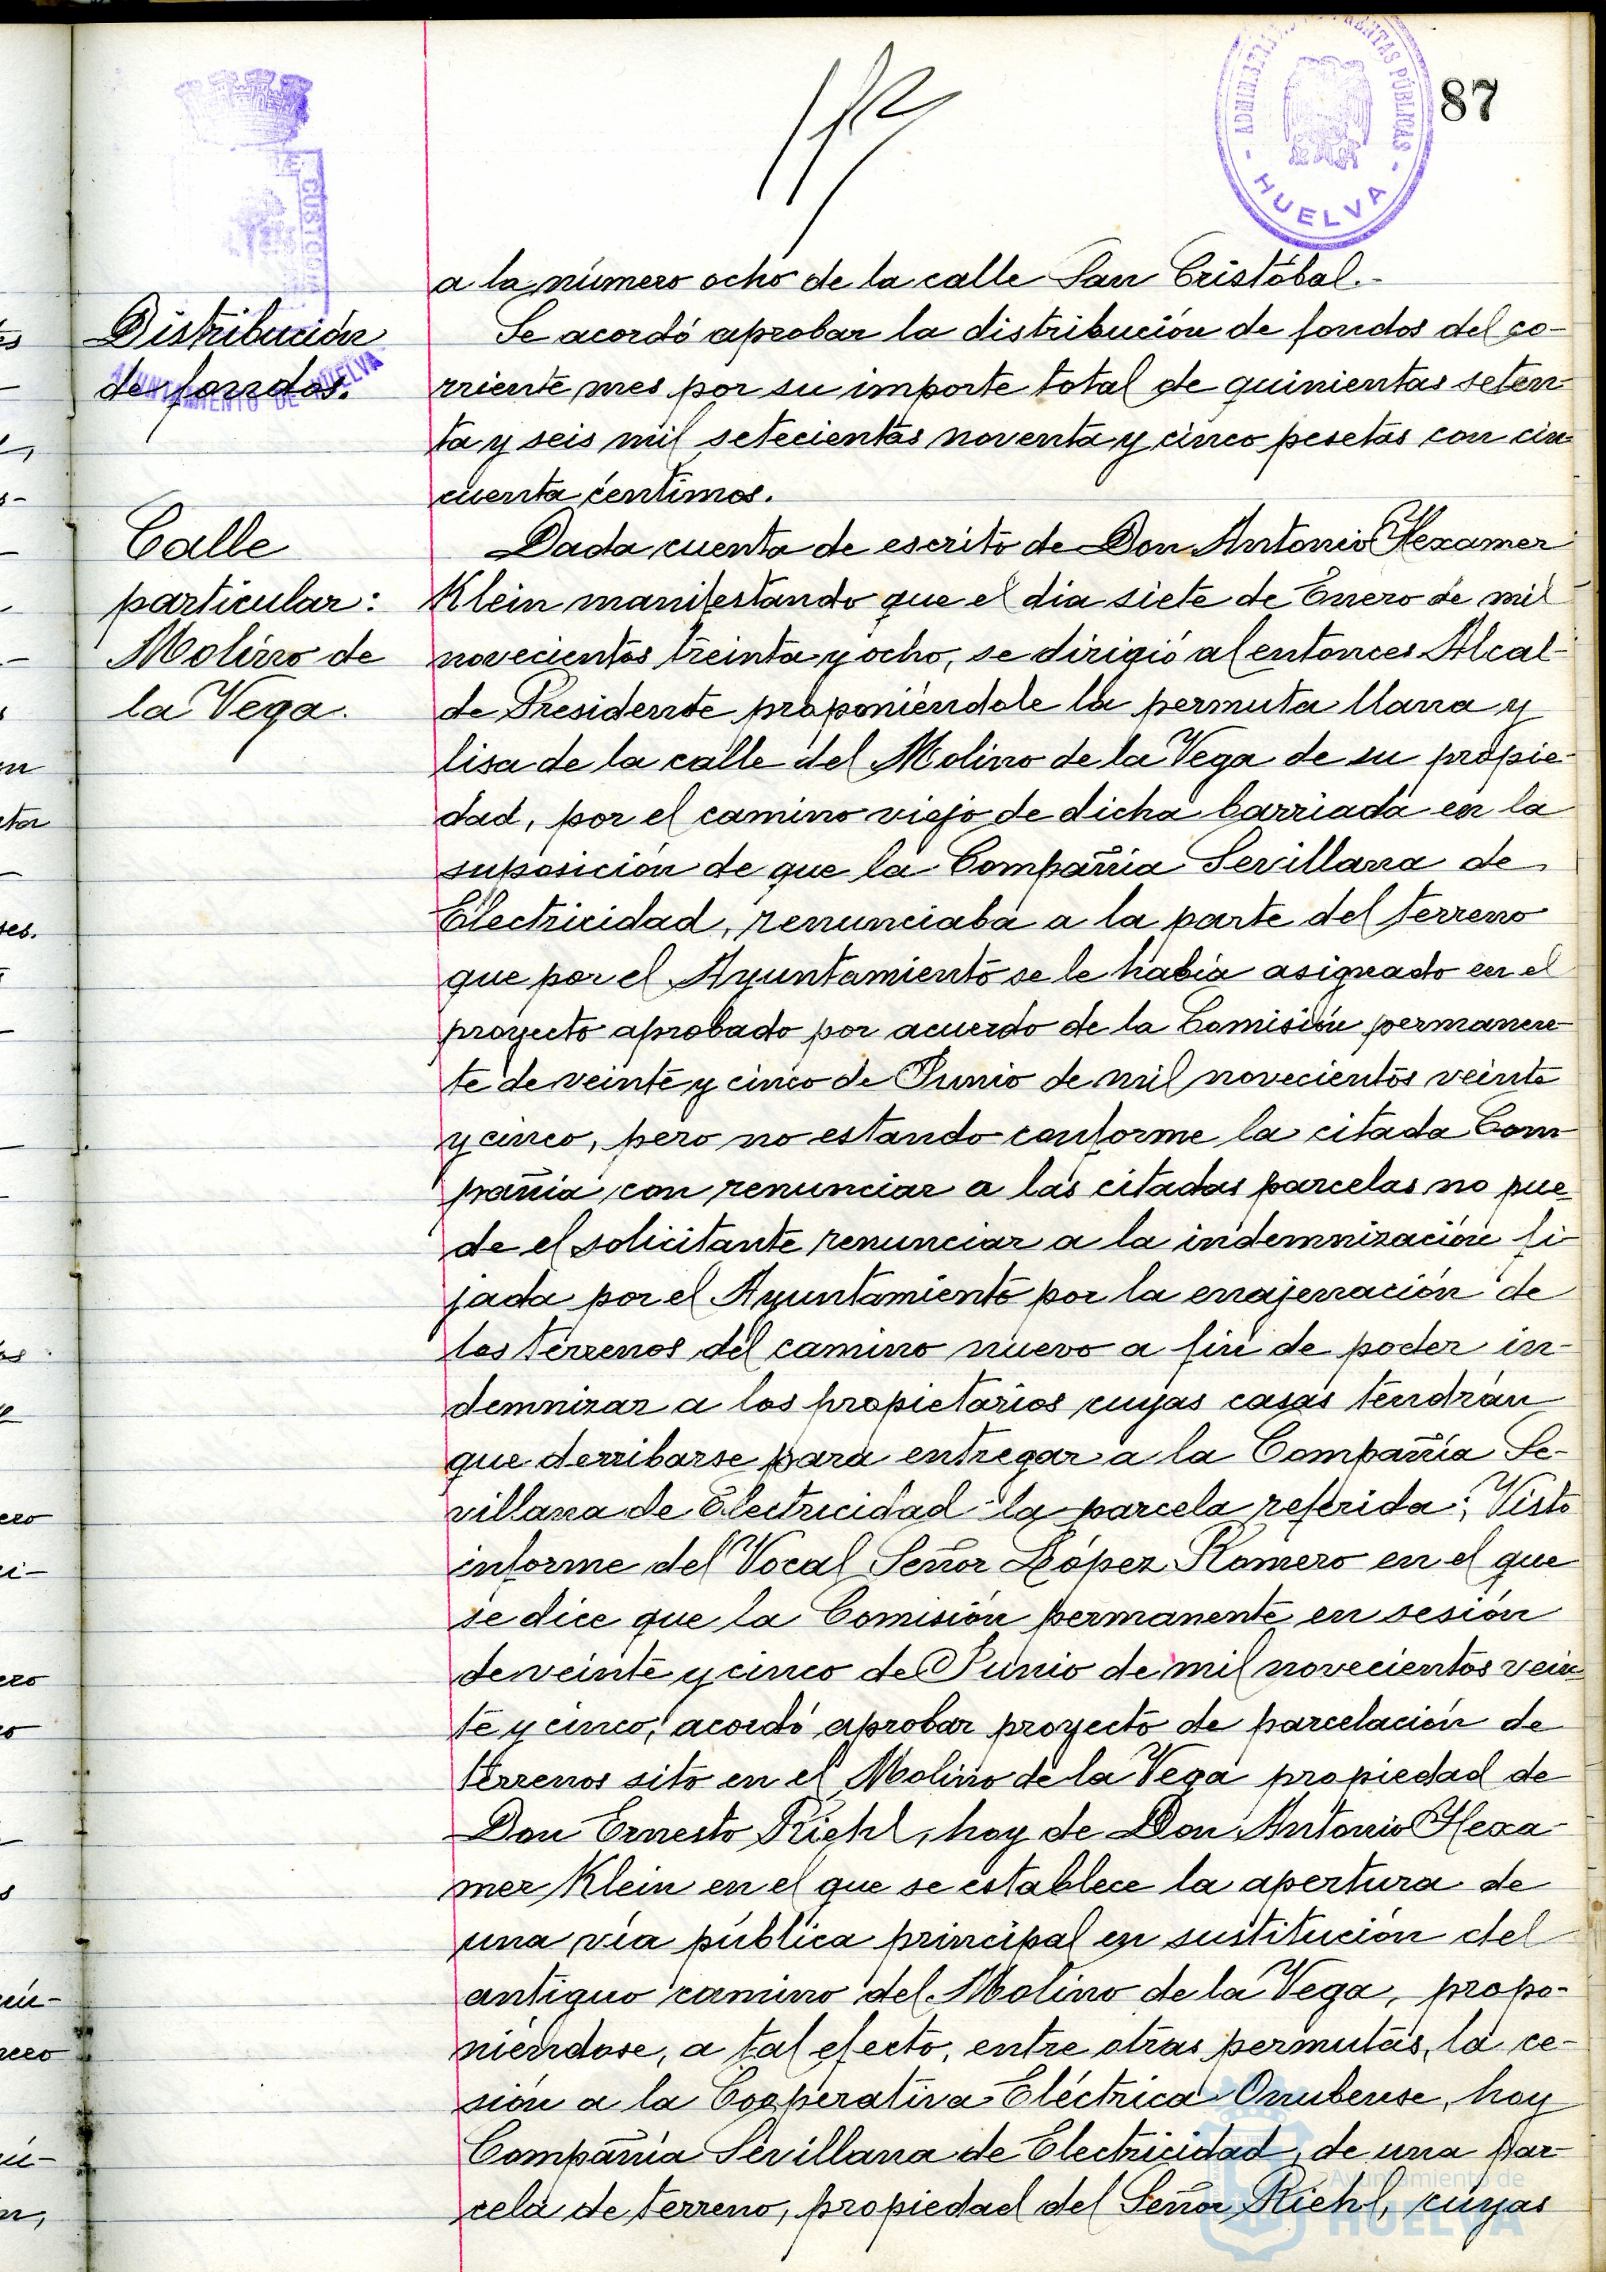 87
ADMINISTRACIÓN DE RENTAS PÚBLICAS
- HUELVA -
AYUNTAMIENTO DE HUELVA
a la número ocho de la calle San Cristóbal.-
Distribución
de fondos.
Se acordó aprobar la distribución de fondos del co-
rriente mes por su importe total de quinientas seten-
ta y seis mil setecientas noventa y cinco pesetas con cin-
cuenta céntimos.
Calle
particular:
Molino de
la Vega.
Dada cuenta de escrito de Don Antonio Hexamer
Klein manifestando que el dia siete de Enero de mil
novecientos treinta y ocho, se dirigió al entonces Alcal-
de Presidente proponiéndole la permuta llana y
lisa de la calle del Molino de la Vega de su propie-
dad, por el camino viejo de dicha barriada en la
suposición de que la Compañia Sevillana de
Electricidad, renunciaba a la parte del terreno
que por el Ayuntamiento se le había asignado en el
proyecto aprobado por acuerdo de la Comisión permanen-
te de veinte y cinco de Junio de mil novecientos veinte
y cinco, pero no estando conforme la citada Com-
pañia con renunciar a las citadas parcelas no pue-
de el solicitante renunciar a la indemnización fi-
jada por el Ayuntamiento por la enajenación de
los terrenos del camino nuevo a fin de poder in-
demnizar a los propietarios cuyas casas tendrán
que derribarse para entregar a la Compañía Se-
villana de Electricidad la parcela referida; Visto
informe del Vocal Señor López Romero en el que
se dice que la Comisión permanente en sesión
de veinte y cinco de Junio de mil novecientos vein-
te y cinco, acordó aprobar proyecto de parcelación de
terrenos sito en el Molino de la Vega propiedad de
Don Ernesto Riehl, hoy de Don Antonio Hexa-
mer Klein en el que se establece la apertura de
una vía pública principal en sustitución del
antiguo camino del Molino de la Vega, propo-
niéndose, a tal efecto, entre otras permutas, la ce-
sión a la Cooperativa Eléctrica Onubense, hoy
Compañia Sevillana de Electricidad, de una par-
cela de terreno, propiedad del Señor Riehl, cuyas
Ayuntamiento de
HUELVA